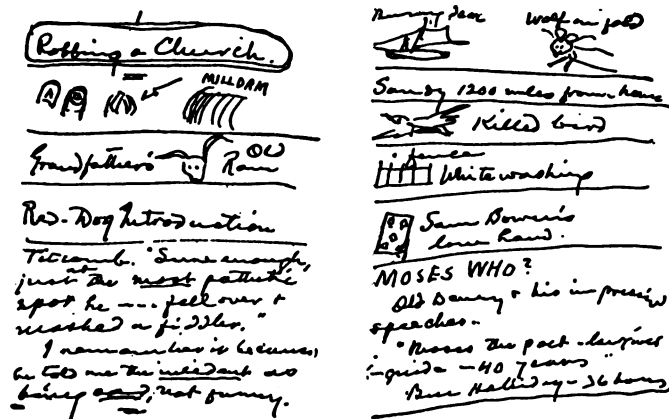 Robbing a Church.
MILLDAM
Grandfather's Old Ram
Red-Dog Introduction
Titcomb. "Sure enough,
just at the most pathetic
spot he --- fell over &
mashed a fiddler."
I remember it because,
he told me the incident as
being good, not funny.
Wolf on
Sandy 1200 miles from home
Killed bird
fence
Whitewashing
Sam Bowen's
lone hand.
MOSES WHO?
Old Danny & his impressive
speeches-
"Moses the poet - lawgiver
-guide - 40 years"
Ben Halliday - 36 hours